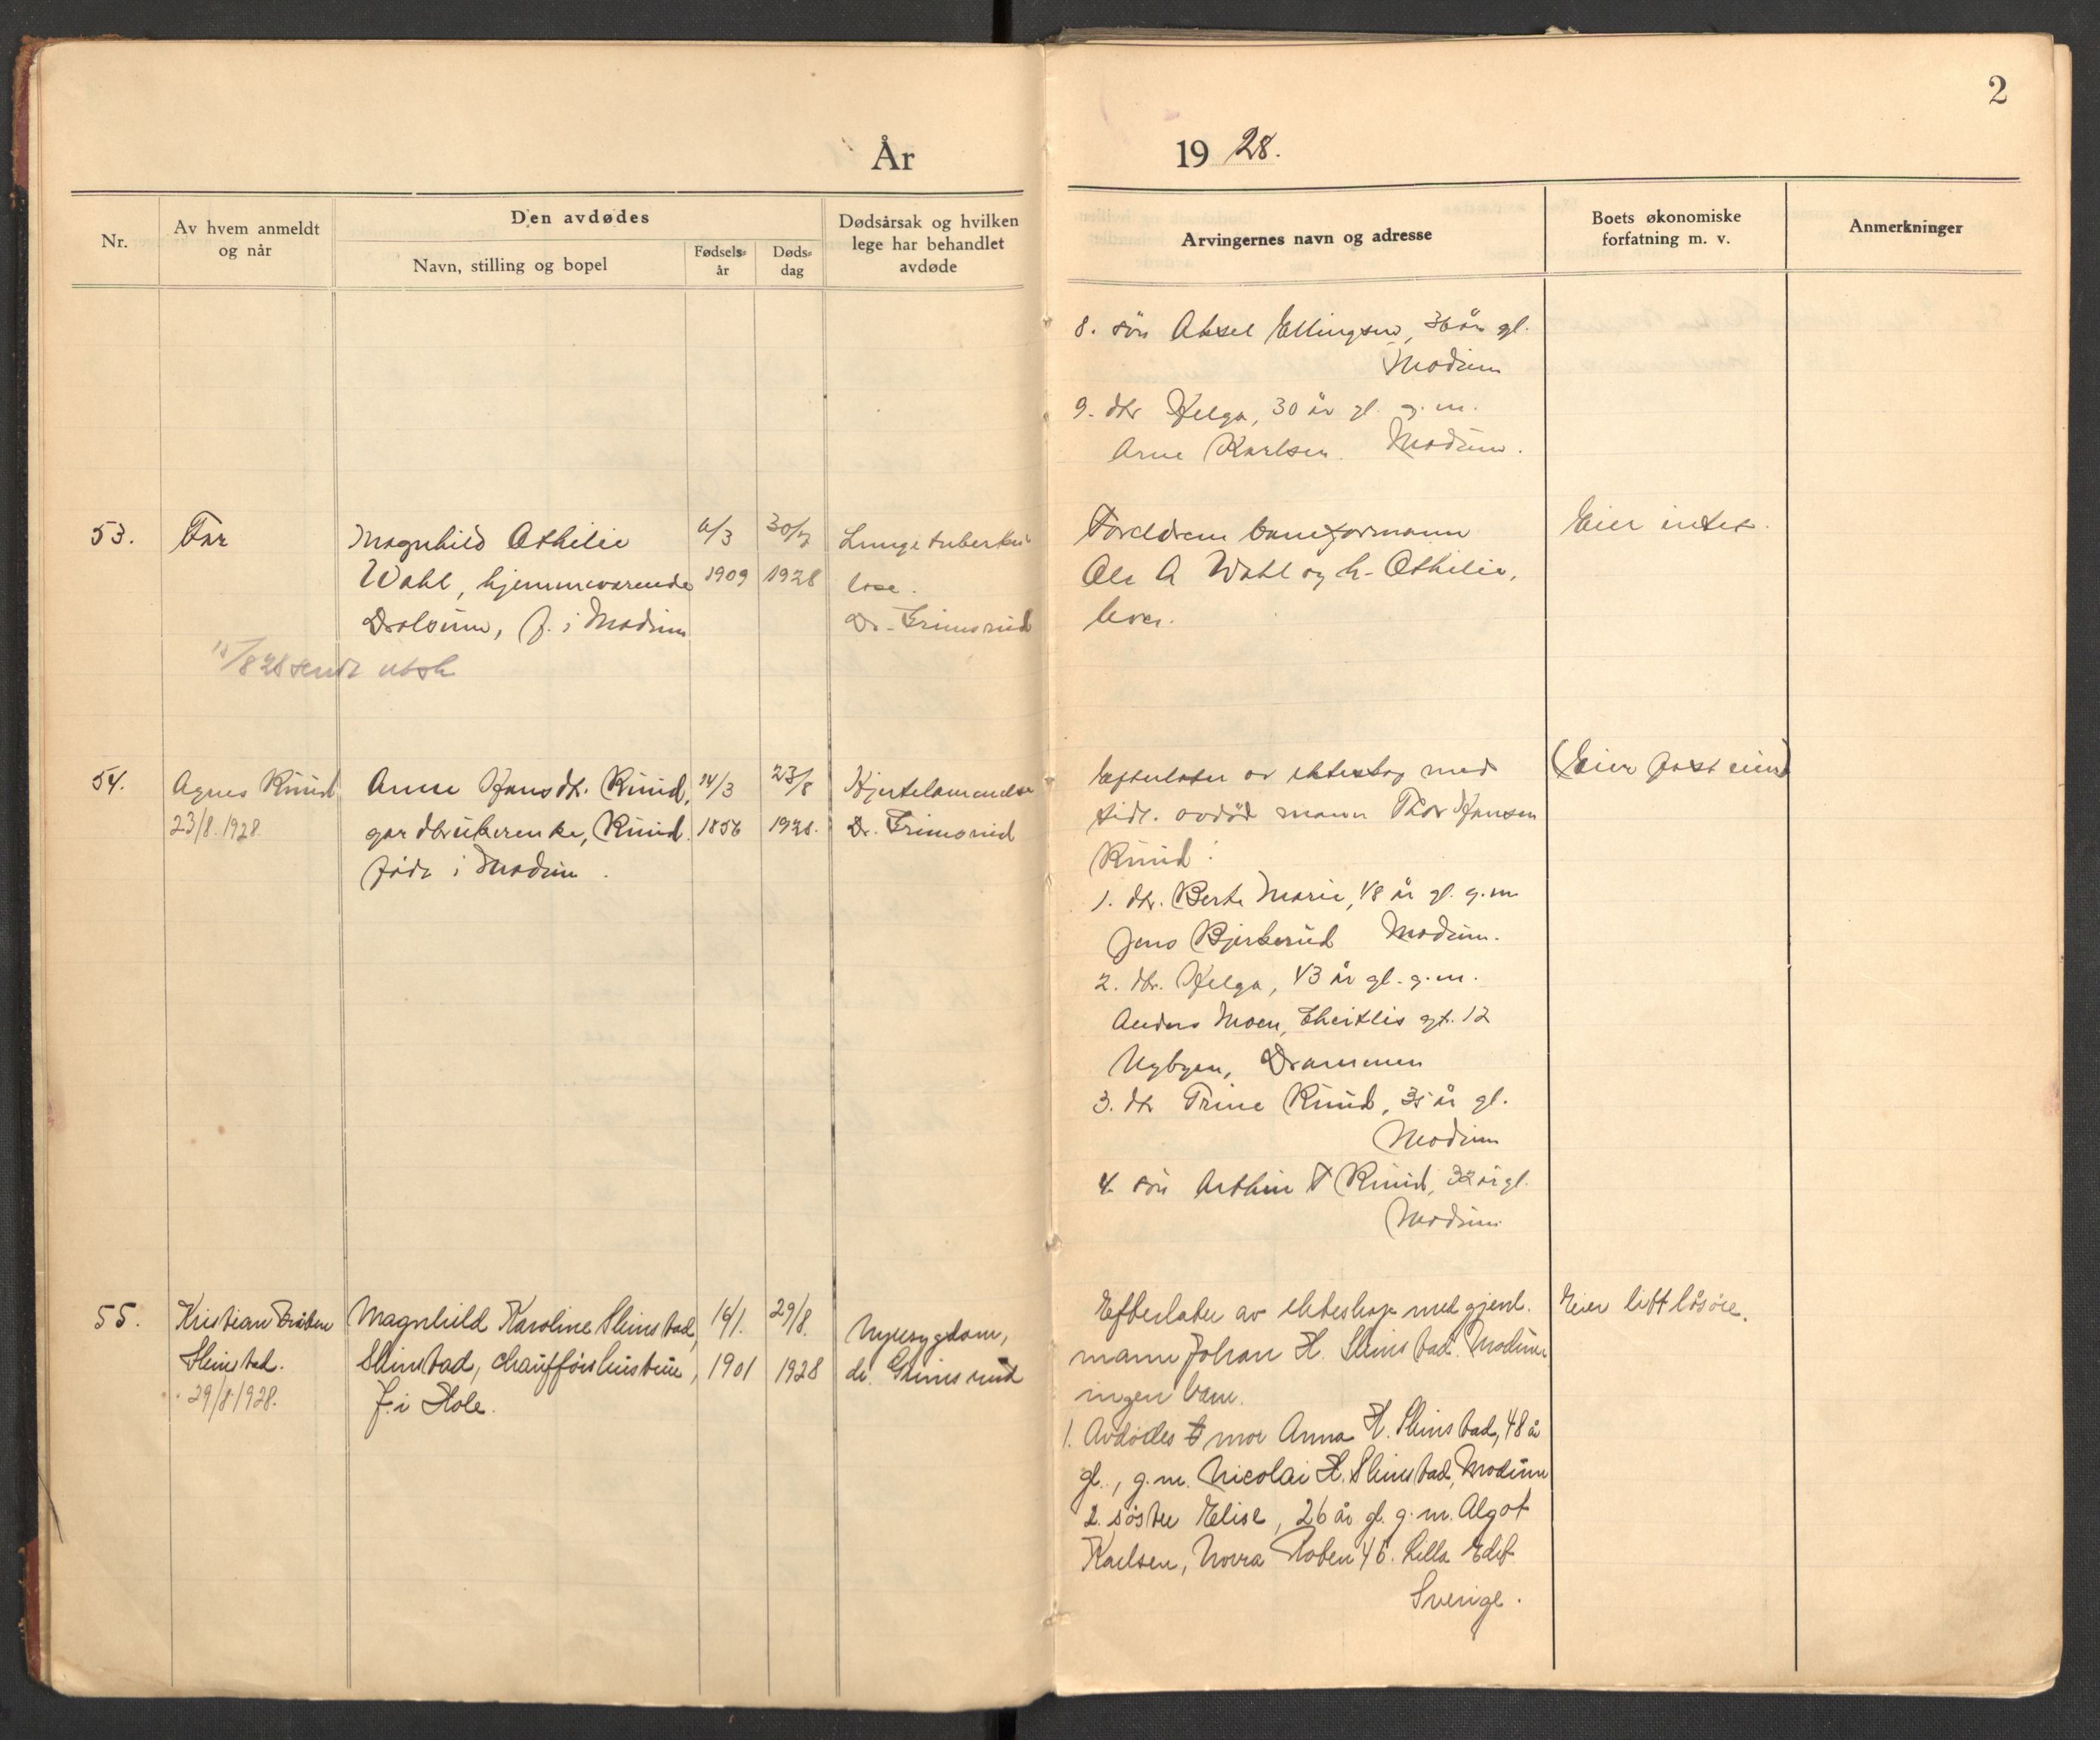 2
År
19 28.
Nr.
Av hvem anmeldt
og når
Den avdødes
Navn, stilling og bopel
Fødsels-
år
Døds-
dag
Dødsårsak og hvilken
lege har behandlet
avdøde
Arvingernes navn og adresse
Boets økonomiske
forfatning m. v.
Anmerkninger
8. sön Aksel Ellingsen, 36 år gl.
Modum
9. dtr Helga, 30 år gl. g.m.
Arne Karlsen. Modum.
53.
Far
Magnhild Othilie
Wahl, hjemmeværende
Drolsum, f. i Modum
/3
1909
30/7
1928
Lungetuberku-
lose.
Dr. Grimsrud
Foreldrene baneformann
Ole A Wahl og h. Othilie,
lever.
Eier intet.
15/8 28 sendt utsk
54.
Agnes Ruud
23/8.1928.
Anne Hansdtr. Ruud,
gardbrukerenke, Ruud.
født i Modum.
14/3
1856
23/8
1928.
Hjertelammelse
Dr. Grimsrud
Efterlater av ekteskap med
tidl. avdöd mann Thor Hansen
Ruud:
1. dtr. Berte Marie, 48 år gl. g.m
Jens Bjerkerud Modum.
2. dtr. Helga, 43 år gl. g.m.
Anders Moen, gt. 12
Nybyen, Drammen
3. dtr Trine Ruud, 35 år gl.
Modum
4. sön Arthur T Ruud, 32 år gl.
Modum.
(Eier fast eiend
55.
Kristian
29/8 1928.
Magnhild Karoline Slimstad,
Slimstad, chaufförhustrue,
f. i Hole.
16/1.
1901
29/8.
1928
Nyresygdom,
dr. Grimsrud
Efterlater av ekteskap med gjenl.
mann Johan H. Slimstad. Modum
ingen barn.
1. Avdödes mor Anna H. Slimstad, 48 år
gl., g.m. Nicolai H. Slimstad, Modum
2. söster Elise, 26 år gl. g.m. Algot
Karlsen, Norra 46. Lilla Edet
Sverige.
Eier litt lösöre.